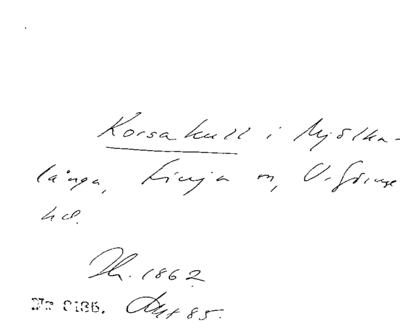 Korsakull i Mjölka-
långa, Finja sn, V. Göinge
hd.
Jk. 1862
Nr 0186. Akt 85.